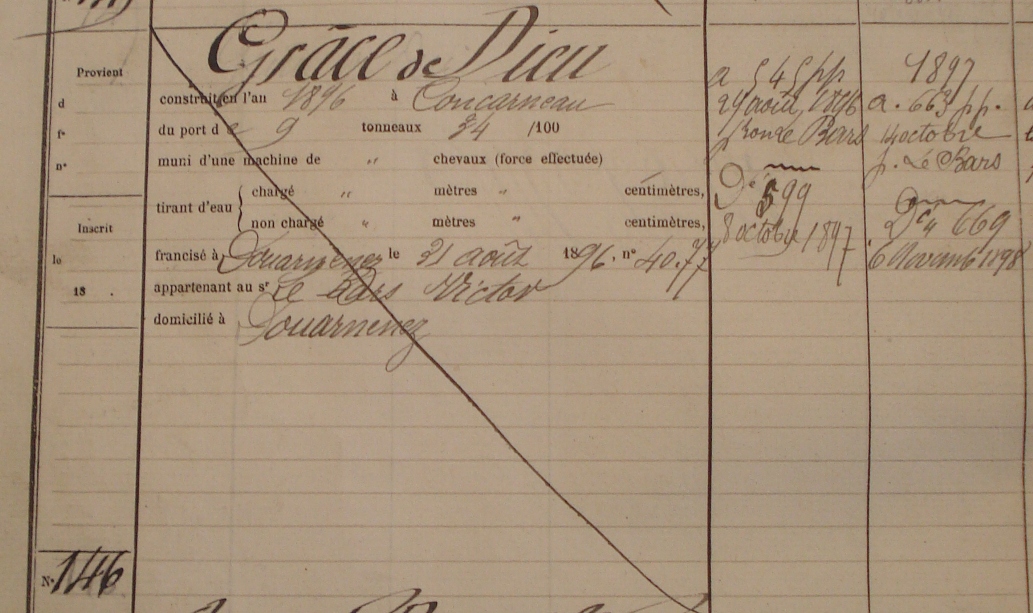 Provient
d
f°
n°
Inscrit
le
18 .
N° 146
Grâce de Dieu
construit en l'an 1896 à Concarneau
du port de 9 tonneaux 24 /100
muni d'une machine de " chevaux (force effectuée)
tirant d'eau { chargé " mètres " centimètres,
non chargé " mètres " centimètres,
francisé à Douarnenez le 21 août 1896. n° 40.77
appartenant au sr Le Bars Victor
domicilié à Douarnenez
a 545 pp
29 août 1896
Bars
599
8 octobre 1897
1897
a. 663 pp.
14 octobre
p. Le Bars
669
6 Novemb 1898